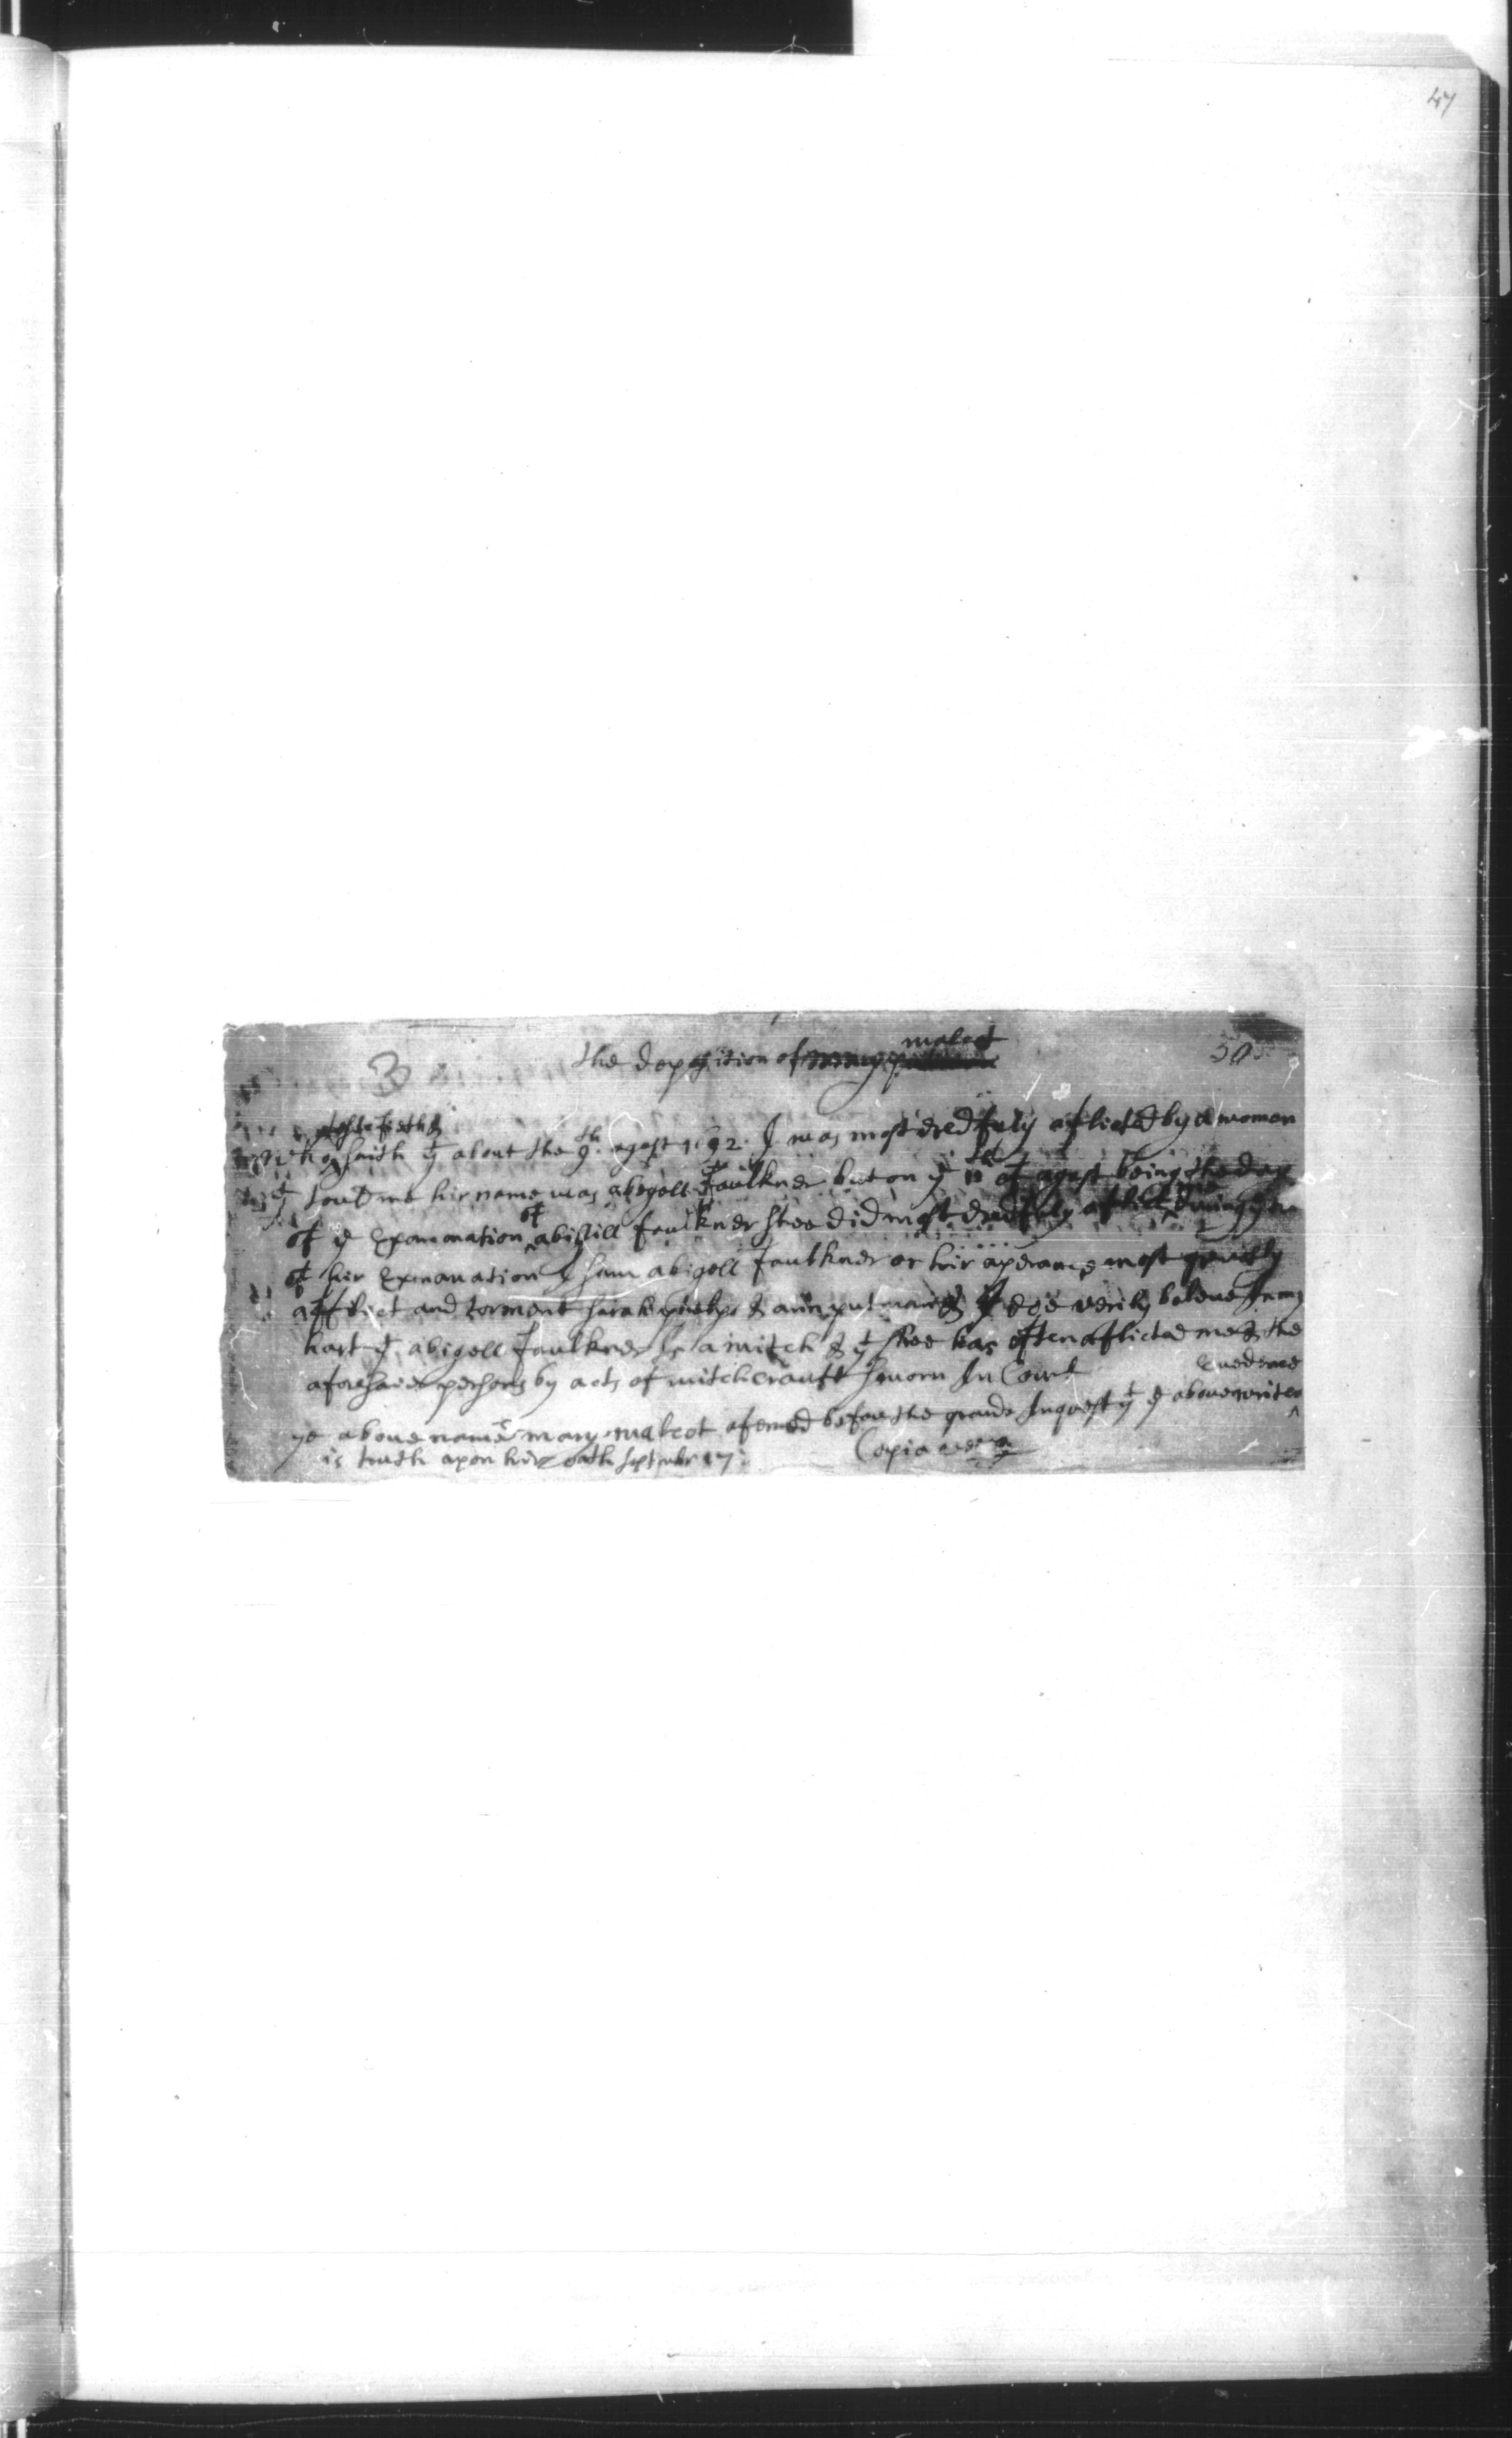 47
the deposition of mary walcot
50
3
testefieth &
who saith yt about the 9th. agust 1692. I was most dredfuly aflicted by a woman
yt tould me hir name was abegell Faulkner but on ye 11th of agust being the day
of ye Examination of abigill faulkner shee did most dredfuly aflict me during ye time
of hir Examanation I saw abigell Faulkner or hir aperance most greviously
afflict and torment sarah phelps & ann putnam & I doe verily beleve In my
hart yt abigell Faulkner Is a wicth & yt shee has often aflicted me & the
aforesaid persons by acts of witchcrauft sworn In Court
ye above named mary walcot afermed before the grande Inquest yt ye above writen Evedence
is truth upon hir oath september 17
Copia vera